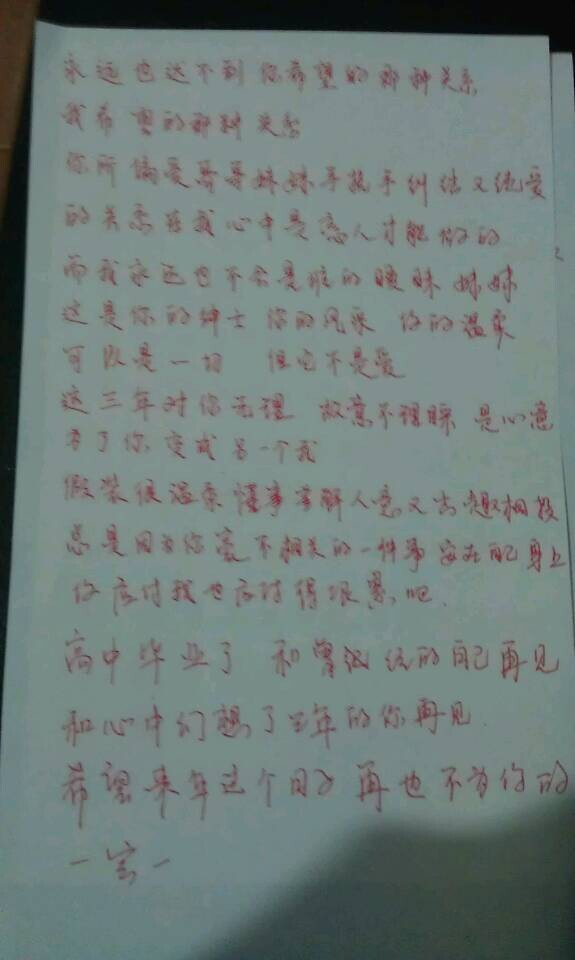 永远也达不到你希望的那种关系
我希望的那种关系
你所偏爱哥哥妹妹手挽手纠结又纯爱
的关系在我心中是恋人才能做的
而我永远也不会是谁的暧昧妹妹
这是你的绅士 你的风采 你的温柔
可以是一切 但它不是爱
这三年对你无理 故意不理睬 是心意
为了你变成另一个我
假装很温柔懂事善解人意又志趣相投
总是因为你毫不相关的一件事安在自己身上
你应付我也应付得很累吧
高中毕业了 和曾经的自己再见
和心中幻想了三年的你再见
希望来年这个日子 再也不为你的